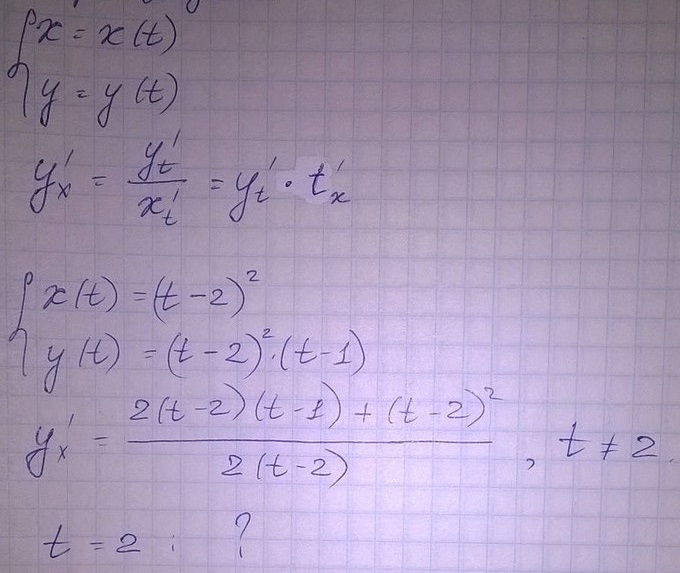 { x = x(t)
y = y(t)
y'ₓ = y'ₜ / x'ₜ = y'ₜ · t'ₓ
{ x(t) = (t - 2)²
y(t) = (t - 2)² · (t - 1)
y'ₓ = (2(t - 2)(t - 1) + (t - 2)²) / (2(t - 2)), t ≠ 2.
t = 2 : ?